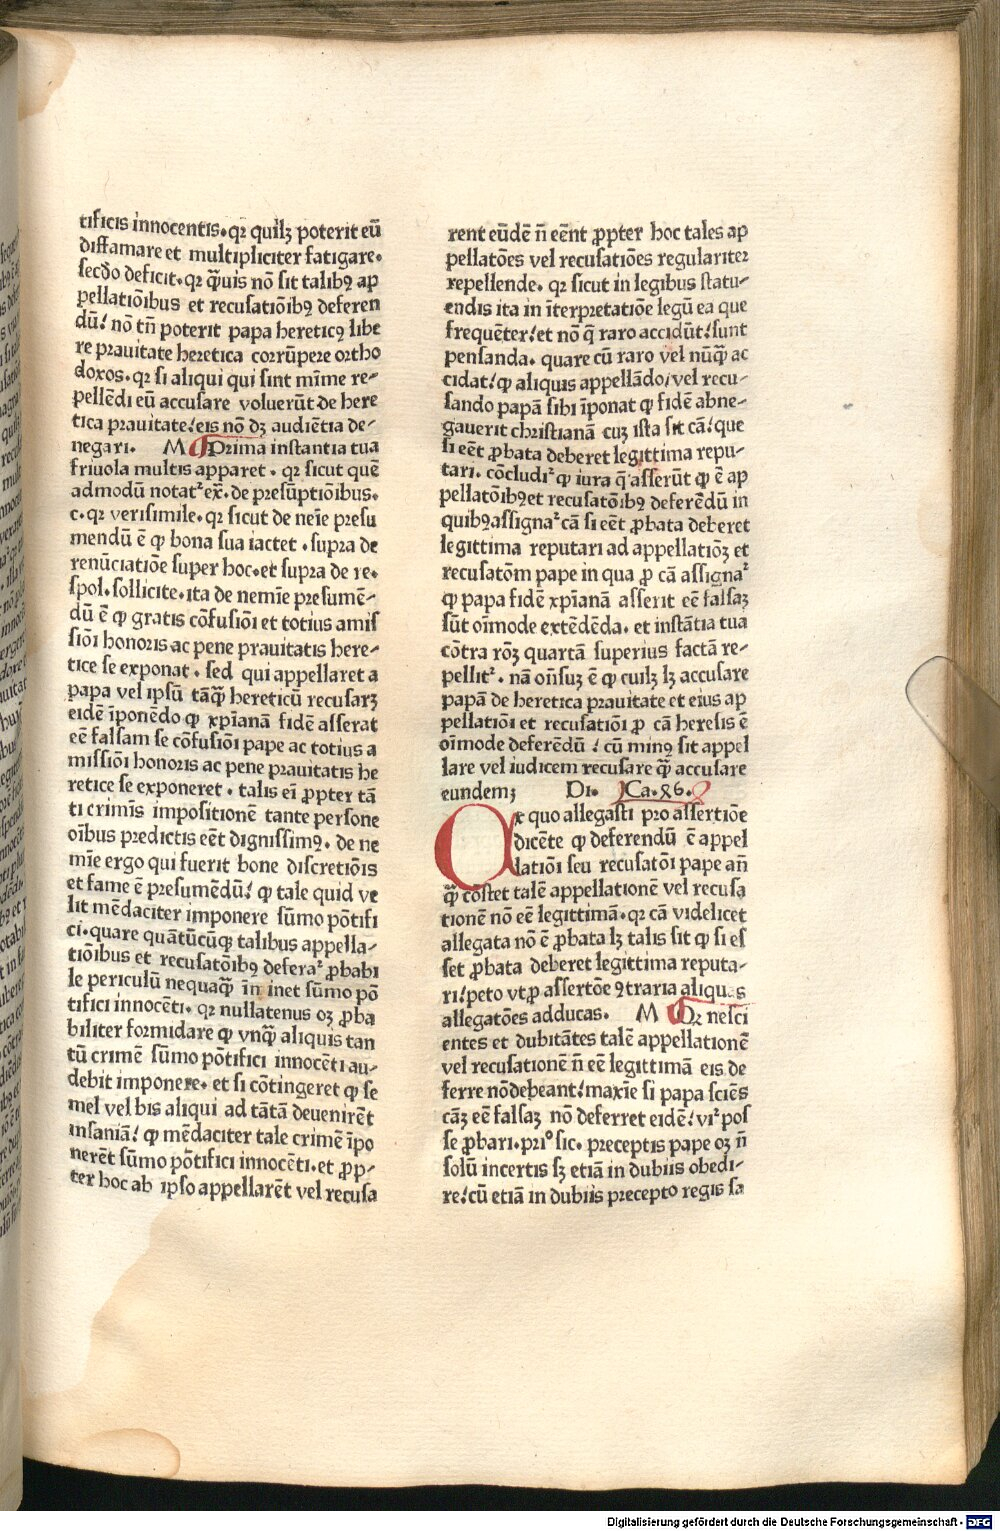 tificis innocentis. qꝛ quilꝫ poterit eū
diffamare et multipliciter fatigare.
secdo deficit. qꝛ q̄uis nō sit talibꝰ ap
pellatiōibus et recusatiōibꝰ deferen
dū! nō tn̄ poterit papa hereticꝰ libe
re prauitate heretica corrūpere ortho
doxos. qꝛ si aliqui qui sint mīme re-
pellēdi eū accusare voluerūt de here
tica prauitate! eis nō dꝫ audiētia de-
negari. M Prima instantia tua
friuola multis apparet. qꝛ sicut quē
admodū notatᷣ ex̄. de presūptiōibus.
c. qꝛ verisimile. qꝛ sicut de neīe presu
mendū ē ꝙ bona sua iactet. supra de
renūciatiōe super hoc. et supra de re.
spol. sollicite. ita de nemīe presumē-
dū ē ꝙ gratis cōfusiōi et totius amis
siōi honoris ac pene prauitatis here-
tice se exponat. sed qui appellaret a
papa vel ipsū tāq̄ hereticū recusarꝫ
eidē īponēdo ꝙ xp̄ianā fidē asserat
eē falsam se cōfusiōi pape ac totius a
missiōi honoris ac pene prauitatis he
retice se exponeret. talis eī ꝓpter tā
ti crimīs impositionē tante persone
oībus predictis eēt dignissimꝰ. de ne
mīe ergo qui fuerit bone discretiōis
et fame ē presumēdū! ꝙ tale quid ve
lit mēdaciter imponere sūmo pōtifi
ci. quare quātūcūqꝫ talibus appella-
tiōibus et recusatōibꝰ deferaᷣ ꝓbabi
le periculū nequaq̄ īn inet sūmo pō
tifici innocēti. qꝛ nullatenus oꝫ ꝓba
biliter formidare ꝙ vnq̄ aliquis tan
tū crimē sūmo pōtifici innocēti au-
debit imponere. et si cōtingeret ꝙ se
mel vel bis aliqui ad tātā deuenirēt
insaniā! ꝙ mēdaciter tale crimē īpo
nerēt sūmo pōtifici innocēti. et ꝓp-
ter hoc ab ipso appellarēt vel recusa
rent eūdē n̄ eēnt ꝓpter hoc tales ap
pellatōes vel recusatiōes regulariteꝛ
repellende. qꝛ sicut in legibus statu-
endis ita in īterpretatiōe legū ea que
frequēter! et nō q̄ raro accidūt! sunt
pensanda. quare cū raro vel nūq̄ ac
cidat! ꝙ aliquis appellādo/ vel recu-
sando papā sibi īponat ꝙ fidē abne-
gauerit christianā cuꝫ ista sit cā! que
si eēt ꝓbata deberet legittima repu-
tari. cōcludiᷣ ꝙ iura q̄ asserūt ꝙ ē ap
pellatōibꝰ et recusatōibꝰ deferēdū in
quibꝰ assignaᷣ cā si eēt ꝓbata deberet
legittima reputari ad appellatiōꝫ et
recusatōm pape in qua ꝓ cā assignaᷣ
ꝙ papa fidē xp̄ianā asserit eē falsaꝫ
sūt oīmode extēdēda. et instātia tua
cōtra rōꝫ quartā superius factā re-
pellitᷣ. nā on̄suꝫ ē ꝙ cuilꝫ lꝫ accusare
papā de heretica prauitate et eius ap
pellatiōi et recusatiōi ꝓ cā heresis ē
oīmode deferēdū! cū minꝰ sit appel
lare vel iudicem recusare q̄ accusare
eundemꝫ Di. Ca. x̄6.
Ex quo allegasti pro assertiōe
dicēte ꝙ deferendū ē appel
latiōi seu recusatōi pape an̄
q̄ cōstet talē appellationē vel recusa
tionē nō eē legittimā. qꝛ cā videlicet
allegata nō ē ꝓbata lꝫ talis sit ꝙ si es
set ꝓbata deberet legittima reputa-
ri! peto vt ꝓ assertōe ꝯtraria aliquas
allegatōes adducas. M Qꝛ nesci
entes et dubitātes talē appellationē
vel recusationē n̄ eē legittimā eis de
ferre nō debeant! maxīe si papa sciēs
cāꝫ eē falsaꝫ nō deferret eidē! viᷣ pos
se ꝓbari. priº sic. preceptis pape oꝫ n̄
solū incertis sꝫ etiā in dubiis obedi-
re! cū etiā in dubiis precepto regis sa
Digitalisierung gefördert durch die Deutsche Forschungsgemeinschaft - DFG